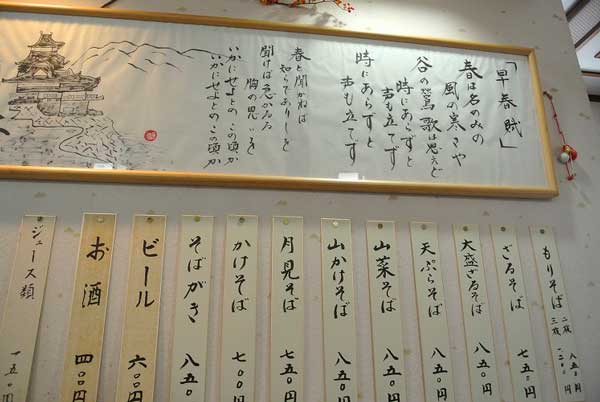 「早春賦」
春は名のみの
風の寒さや
谷の鶯歌は思えど
時にあらずと
声も立てず
時にあらずと
声も立てず
春と聞かねば
知らでありしを
聞けば急かるる
胸の思いを
いかにせよとの この頃か
いかにせよとの この頃か
もりそば 二枚 八五〇円
三枚 一二〇〇円
ざるそば 七五〇円
大盛ざるそば 八五〇円
天ぷらそば 八五〇円
山菜そば 八五〇円
山かけそば 八五〇円
月見そば 七五〇円
かけそば 七〇〇円
そばがき 八五〇
ビール 六〇〇円
お酒 四〇〇円
ジュース類 一五〇円